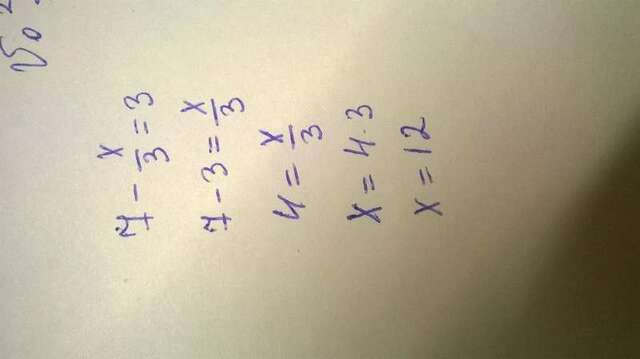 7 - x/3 = 3
7 - 3 = x/3
4 = x/3
x = 4·3
x = 12